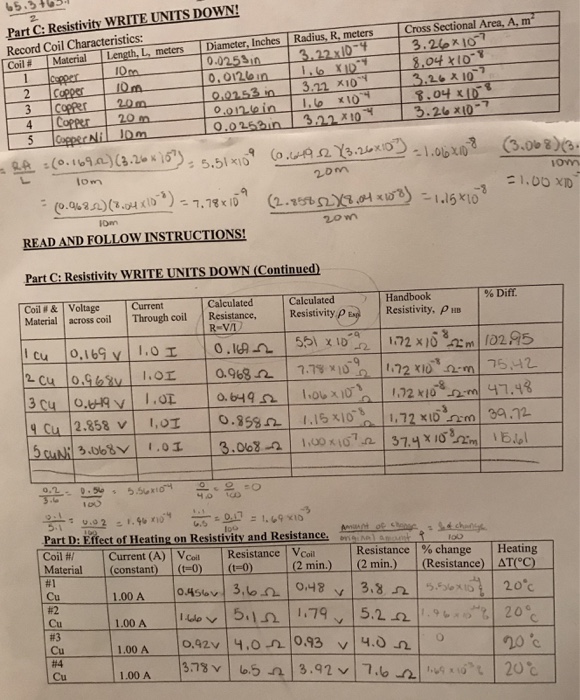 65.3+65.
2
Part C: Resistivity WRITE UNITS DOWN!
Record Coil Characteristics:
Coil # Material Length, L, meters Diameter, Inches Radius, R, meters Cross Sectional Area, A, m²
1 Copper 10m 0.0253in 3.22x10⁻⁴ 3.26x10⁻⁷
2 Copper 10m 0.0126in 1.6 x10⁻⁴ 8.04 x10⁻⁸
3 Copper 20m 0.0253in 3.22 x10⁻⁴ 3.26 x 10⁻⁷
4 Copper 20m 0.0126in 1.6 x10⁻⁴ 8.04 x10⁻⁸
5 CopperNi 10m 0.0253in 3.22 x10⁻⁴ 3.26x10⁻⁷
= RA/L = (0.169Ω)(3.26x10⁻⁷)/10m = 5.51x10⁻⁹ (0.649Ω)(3.26x10⁻⁷)/20m = 1.06x10⁻⁸ (3.068)(3. 10m
= (0.968Ω)(8.04x10⁻⁸)/10m = 7.78x10⁻⁹ (2.858Ω)(8.04x10⁻⁸)/20m = 1.15x10⁻⁸ = 1.00 x10
READ AND FOLLOW INSTRUCTIONS!
Part C: Resistivity WRITE UNITS DOWN (Continued)
Coil # & Material Voltage across coil Current Through coil Calculated Resistance, R=V/I Calculated Resistivity ρ Exp Handbook Resistivity, ρ HB % Diff.
1 Cu 0.169 V 1.0 I 0.169Ω 5.51 x10⁻⁹ Ω 1.72 x10⁻⁸ Ω·m 102.95
2 Cu 0.968V 1.0I 0.968 Ω 7.78 x10⁻⁹ Ω 1.72 x10⁻⁸ Ω·m 75.42
3 Cu 0.649 V 1.0I 0.649 Ω 1.06x10⁻⁸ Ω 1.72x10⁻⁸ Ω·m 47.48
4 Cu 2.858 V 1.0I 0.858Ω 1.15x10⁻⁸ Ω 1.72 x10⁻⁸ Ω·m 39.72
5 CuNi 3.068V 1.0I 3.068Ω 1.00x10⁻⁷ Ω 37.4x10⁻⁸ Ω·m
0.2/3.6 = 0.56/100 = 5.56x10⁻⁴ 0/4.0 = 0/100 = 0
0.1/5.1 = 0.02/100 = 1.96 x10⁻⁴ 1.1/6.5 = 0.17/100 = 1.69x10⁻³
Amount of change/original amount = % change/100
Part D: Effect of Heating on Resistivity and Resistance.
Coil #/ Material Current (A) (constant) V Coil (t=0) Resistance (t=0) V Coil (2 min.) Resistance (2 min.) % change (Resistance) Heating ΔT(°C)
#1 Cu 1.00 A 0.456v 3.6Ω 0.48 v 3.8 Ω 20°C
#2 Cu 1.00 A 1.66v 5.1Ω 1.79 v 5.2 Ω 20°C
#3 Cu 1.00 A 0.92v 4.0Ω 0.93 v 4.0 Ω 0 20°C
#4 Cu 1.00 A 3.78 v 6.5 Ω 3.92 v 7.6 Ω 20°C